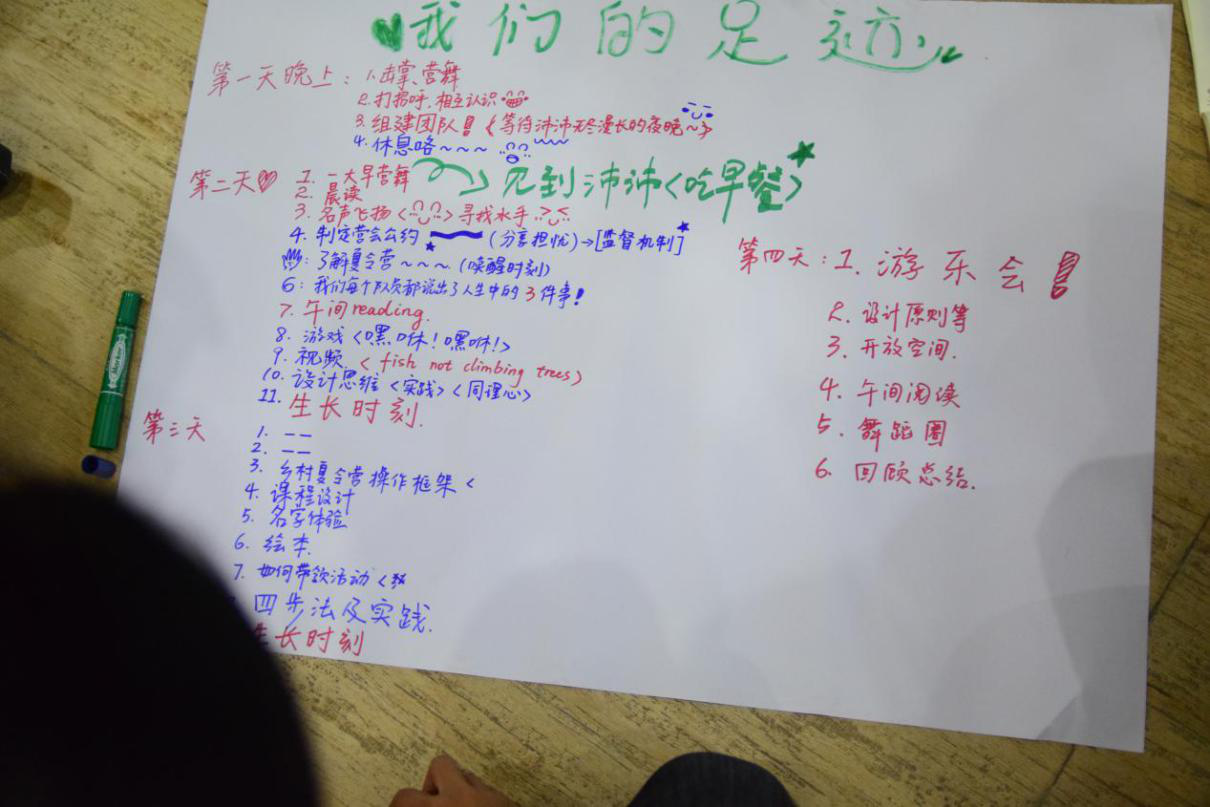 我们的足迹
第一天晚上：1.击掌、营舞
2.打招呼,相互认识
3.组建团队！《等待沛沛无尽漫长的夜晚~》
4.休息咯~~~
第二天 1. 一大早营舞 见到沛沛<吃早餐>
2. 晨读
3. 名声飞扬< >寻找水手
4. 制定营会公约 (分享担忧)→[监督机制]
: 了解夏令营~~~(唤醒时刻)
6: 我们每个队员都说出了人生中的3件事!
7. 午间reading.
8. 游戏<嘿咻!嘿咻!>
9. 视频 < fish not climbing trees>
10. 设计思维<实践><同理心>
11. 生长时刻.
第三天 1. 一一
2. 一一
3. 乡村夏令营操作框架<
4. 课程设计
5. 名字体验
6. 绘本.
7. 如何带领活动<
四步法及实践.
生长时刻
第四天：1. 游乐会!
2. 设计原则等
3. 开放空间.
4. 午间阅读
5. 舞蹈圈
6. 回顾总结.
Marker